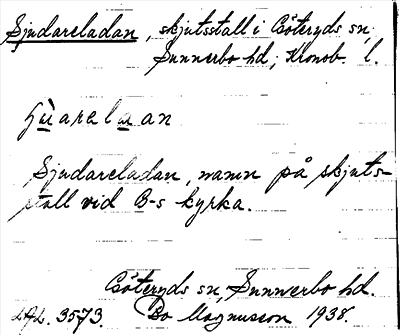 Sjudareladan, skjutsstall i Göteryds sn,
Sunnerbo hd, Kronob. l.
ʃùarelaan
Sjudareladan, namn på skjuts-
stall vid G-s kyrka.
Göteryds sn, Sunnerbo hd.
LAL. 3573. Bo Magnusson 1938.